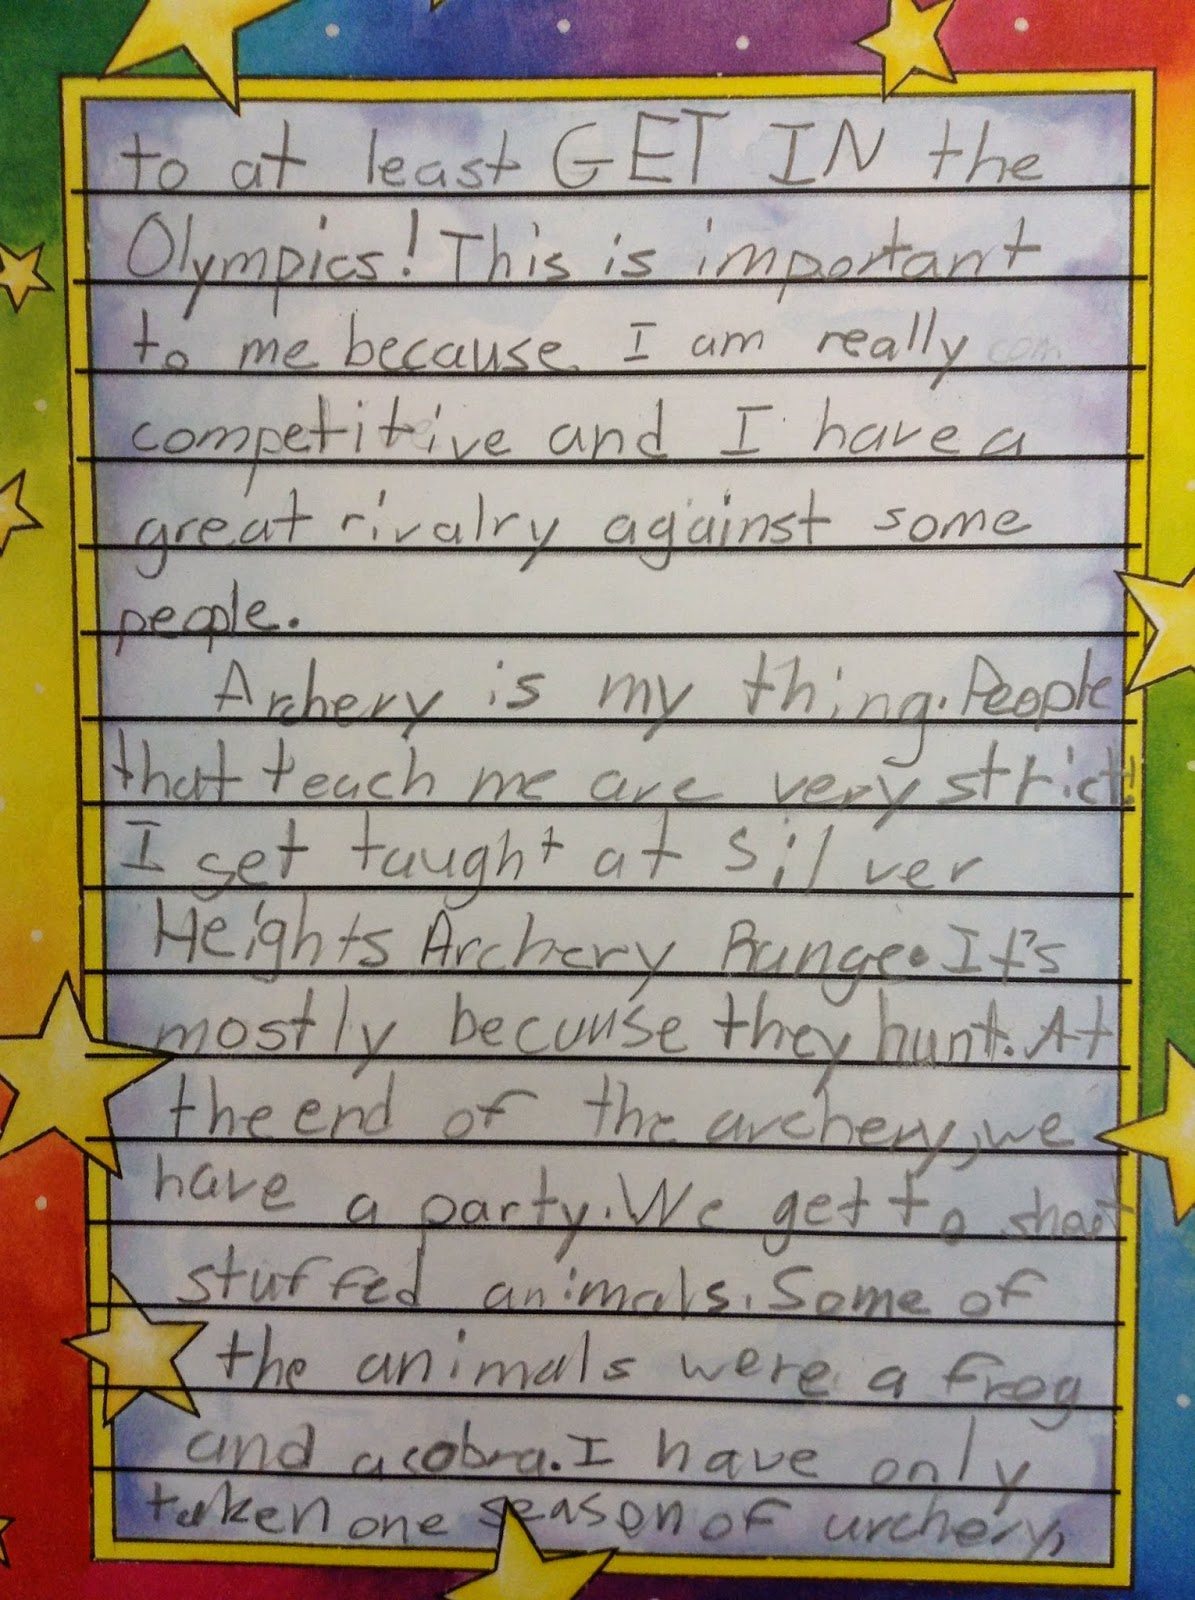 to at least GET IN the
Olympics! This is important
to me because I am really
competitive and I have a
great rivalry against some
people.
Archery is my thing. People
that teach me are very strict!
I get taught at Silver
Heights Archery Range. It's
mostly because they hunt. At
the end of the archery, we
have a party. We get to shoot
stuffed animals. Some of
the animals were a frog
and a cobra. I have only
taken one season of archery,